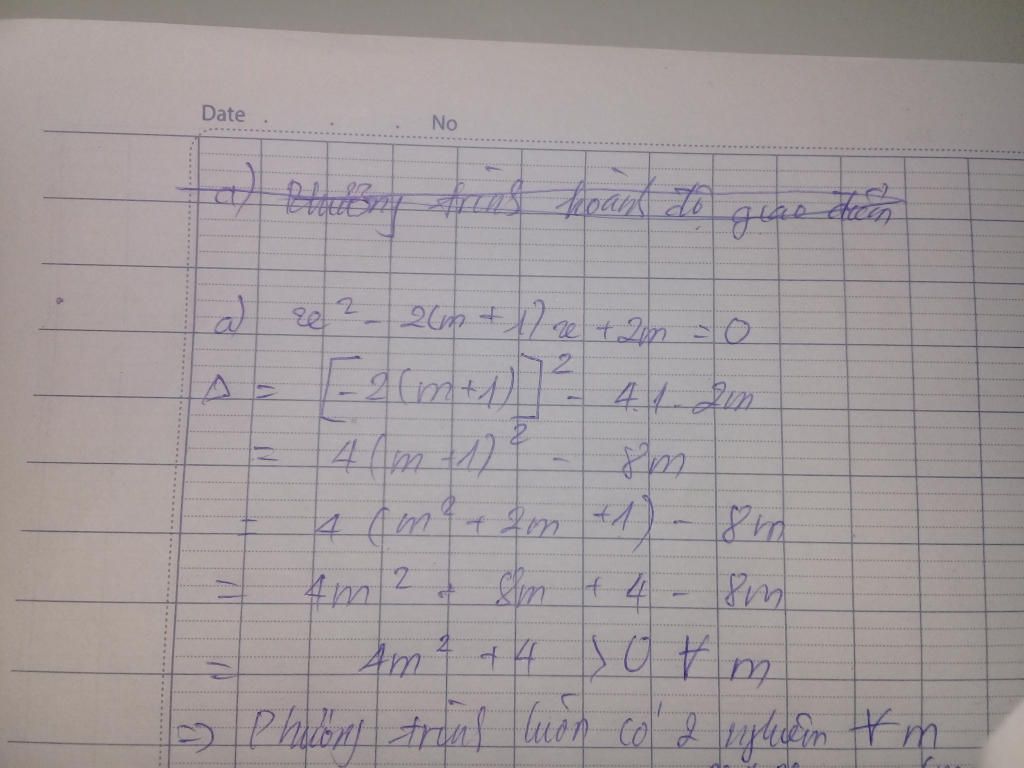 Date . . . No
a) Phương trình hoành độ giao điểm
a) x² - 2(m + 1)x + 2m = 0
Δ = [-2(m+1)]² - 4.1.2m
= 4(m+1)² - 8m
= 4(m² + 2m + 1) - 8m
= 4m² + 8m + 4 - 8m
= 4m² + 4 > 0 ∀ m
=> Phương trình luôn có 2 nghiệm ∀ m